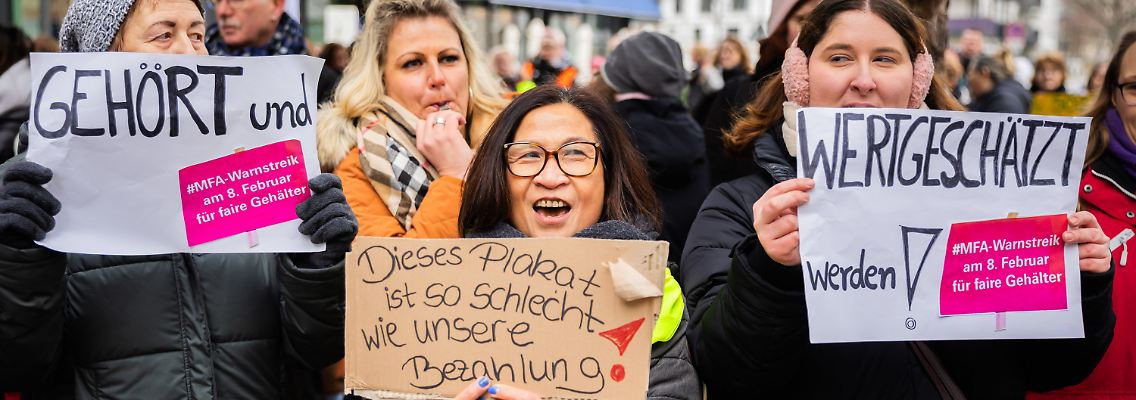 GEHÖRT und
#MFA-Warnstreik
am 8. Februar
für faire Gehälter
Dieses Plakat
ist so schlecht
wie unsere
Bezahlung!
WERTGESCHÄTZT
werden!
#MFA-Warnstreik
am 8. Februar
für faire Gehälter